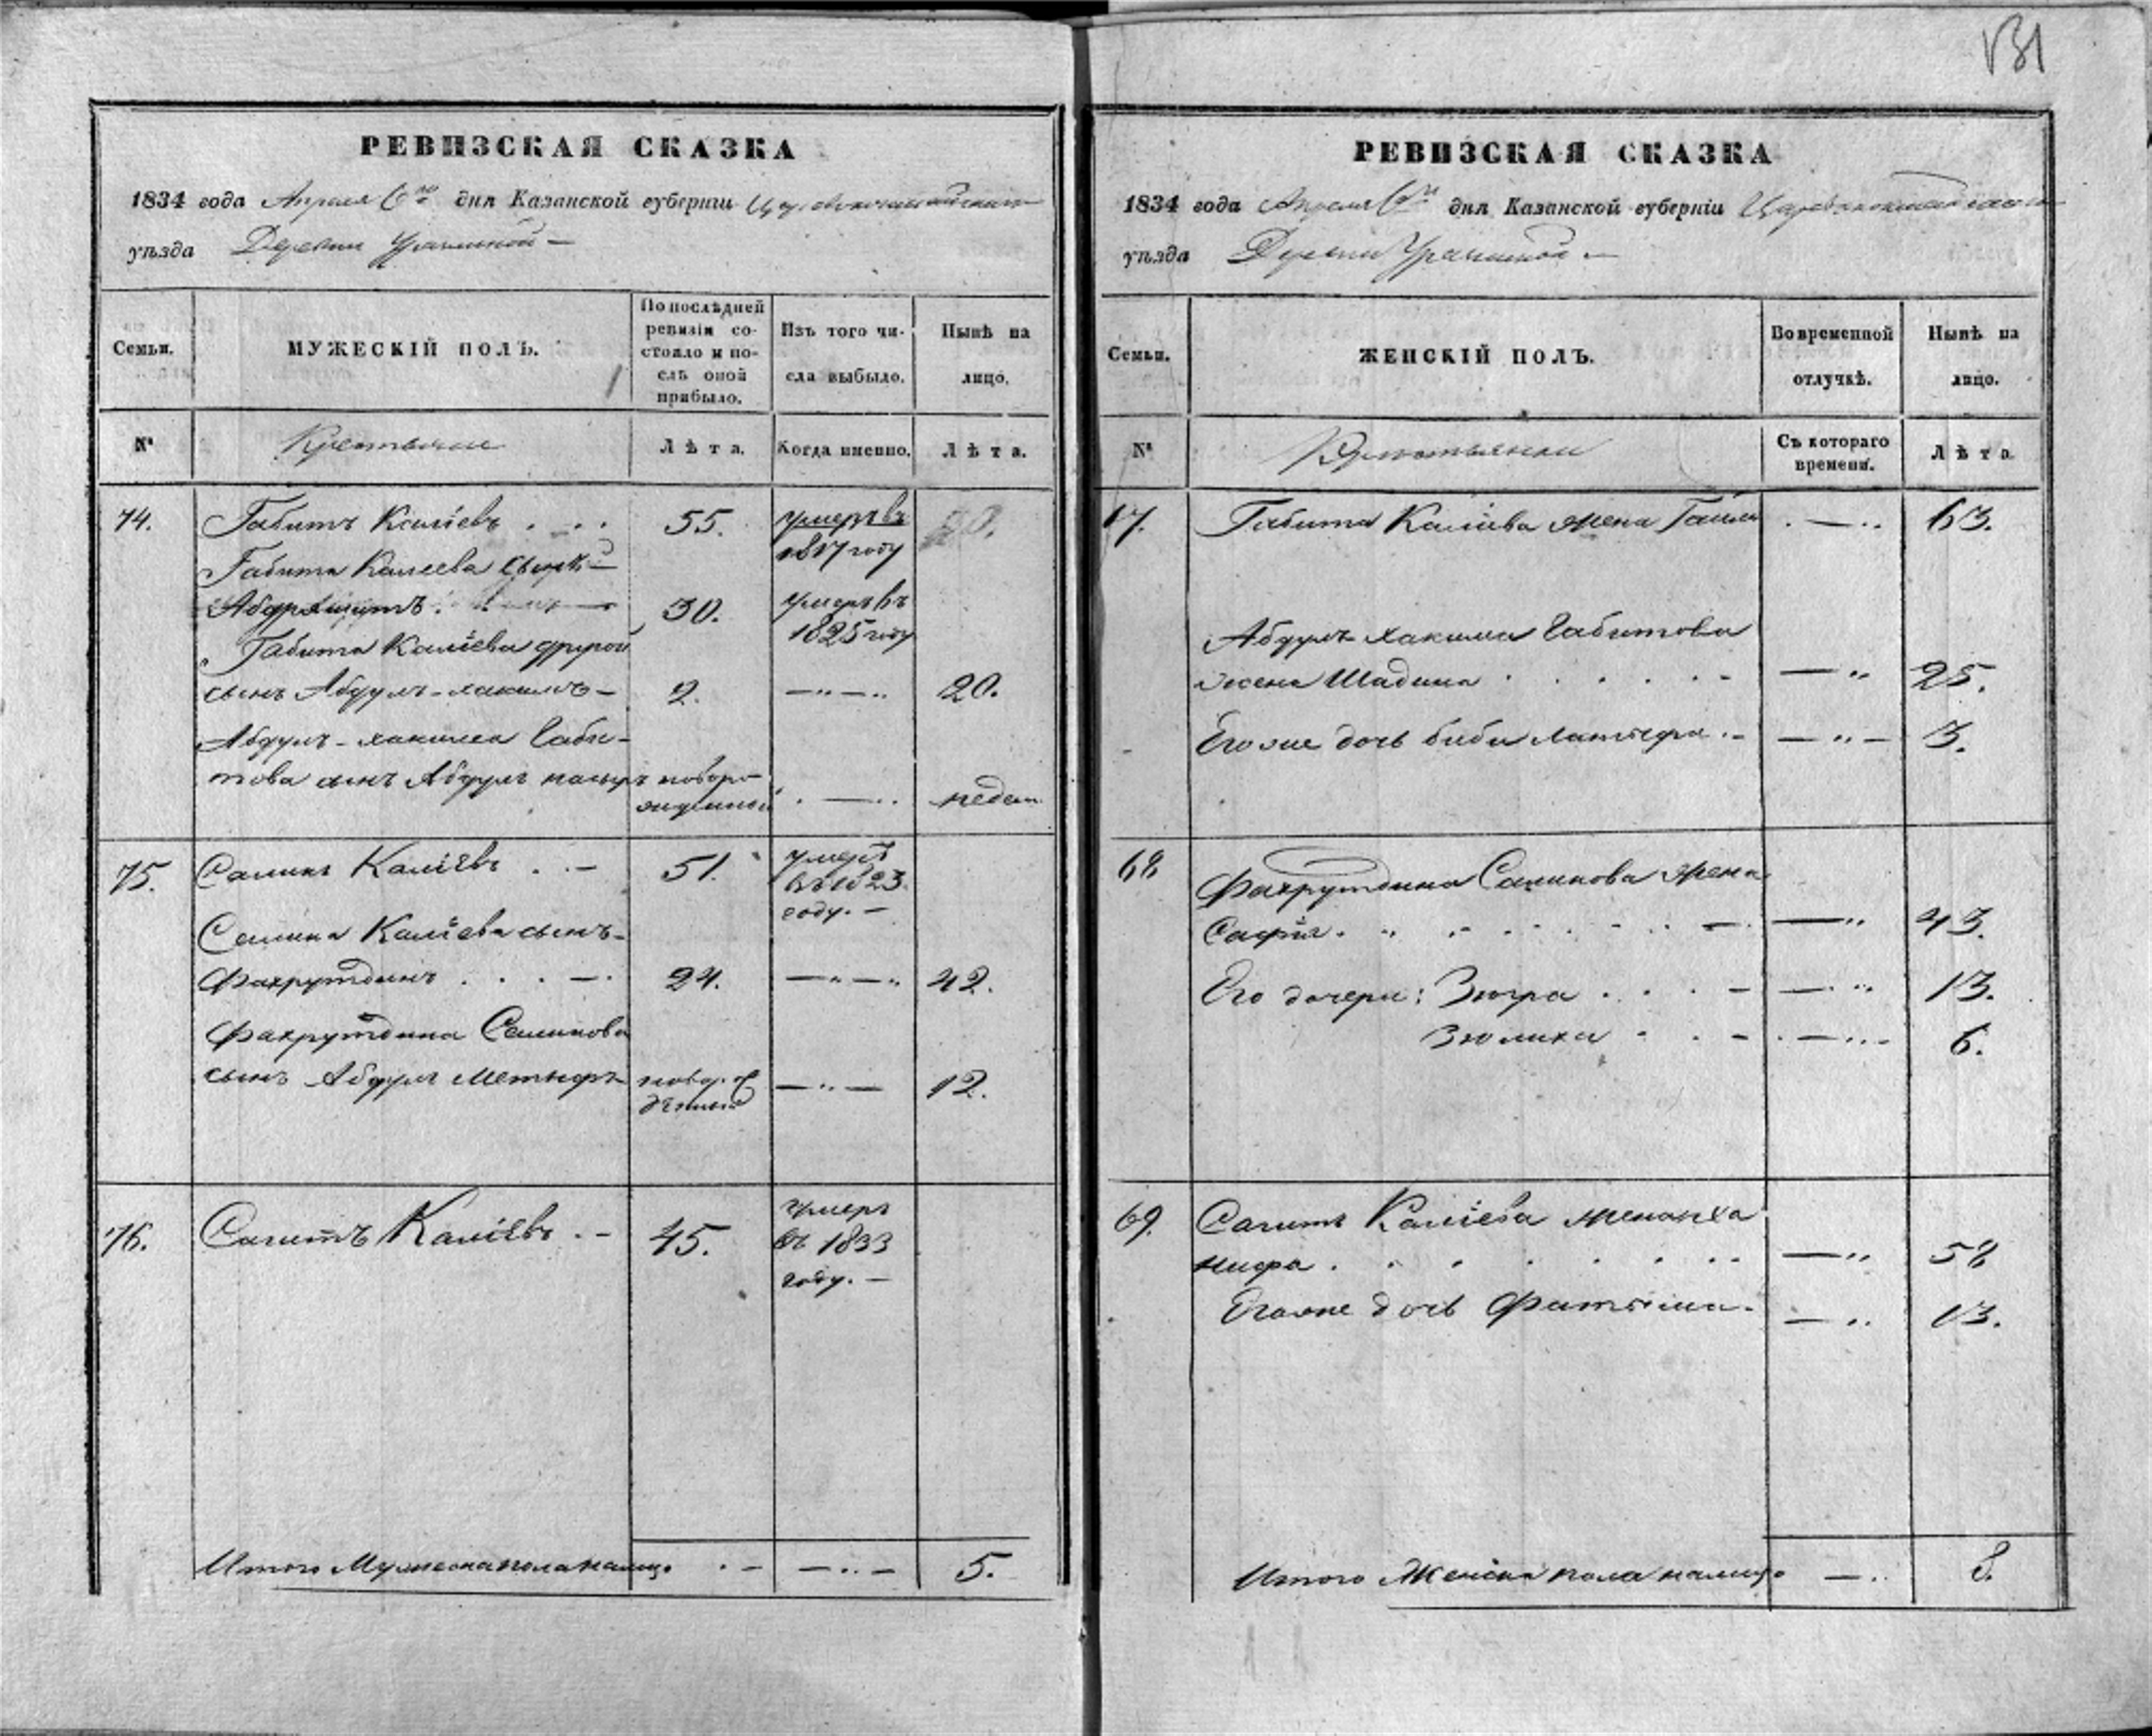 131
РЕВИЗСКАЯ СКАЗКА
1834 года Апреля 6го дня Казанской губерніи Царевококшайскаго
уѣзда Деревни
Семьи.
МУЖЕСКІЙ ПОЛЪ.
По послѣдней
ревизіи со-
стояло и по-
слѣ оной
прибыло.
Изъ того чи-
сла выбыло.
Нынѣ на
лицо.
№
Крестьяне
Лѣта.
Когда именно.
Лѣта.
74. Габитъ Каліевъ 55. умеръ въ
1817 году
Габита Калеева сынъ
30. умеръ въ
1825 году
Габита Каліева другой
сынъ Абдулъ-хакимъ 2. 20.
Абдулъ-хакима Габи-
това сынъ Абдулъ насыръ новоро-
жденной недел.
75. Салихъ Каліевъ 51. умеръ
въ 1823
году.
Салиха Каліева сынъ
Фахрутдинъ 24. 42.
Фахрутдина Салихова
сынъ Абдулъ 12.
76. Сагитъ Каліевъ 45. умеръ
въ 1833
году.
Итого Мужеска пола налицо 5.
РЕВИЗСКАЯ СКАЗКА
1834 года Апреля 6го дня Казанской губерніи Царевококшайскаго
уѣзда Деревни
Семьи.
ЖЕНСКІЙ ПОЛЪ.
Во временной
отлучкѣ.
Нынѣ на
лицо.
№
Крестьянки
Съ котораго
времени.
Лѣта
Габита Каліева жена 63.
Абдулъ хакима Габитова
жена Шадина 25.
Его же дочь биби Латыфа 3.
68 Фахрутдина Салихова жена
Сафія 43.
Его дочери: Зюгра 13.
Зюлиха 6.
69. Сагитъ Каліева жена Ха
нифа 58
Его же дочь Фатыма 13.
Итого Женска пола налицо 8.